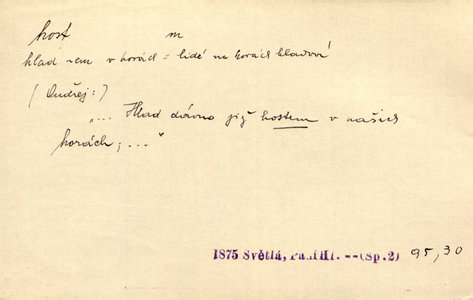 host m
hlad hostem v horách = lidé na horách hladoví
(Ondřej:)
"... Hlad dávno již hostem v našich
horách; ..."
1875 Světlá, (Sp. 2) 95,30